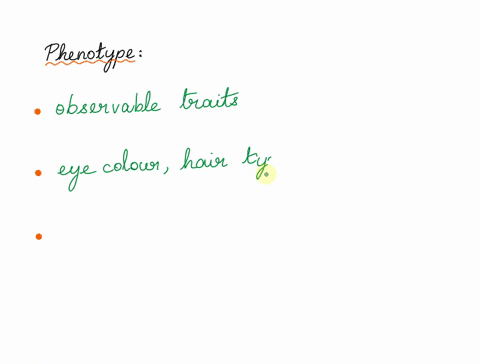 Phenotype:
• observable traits
• eye colour, hair ty
•